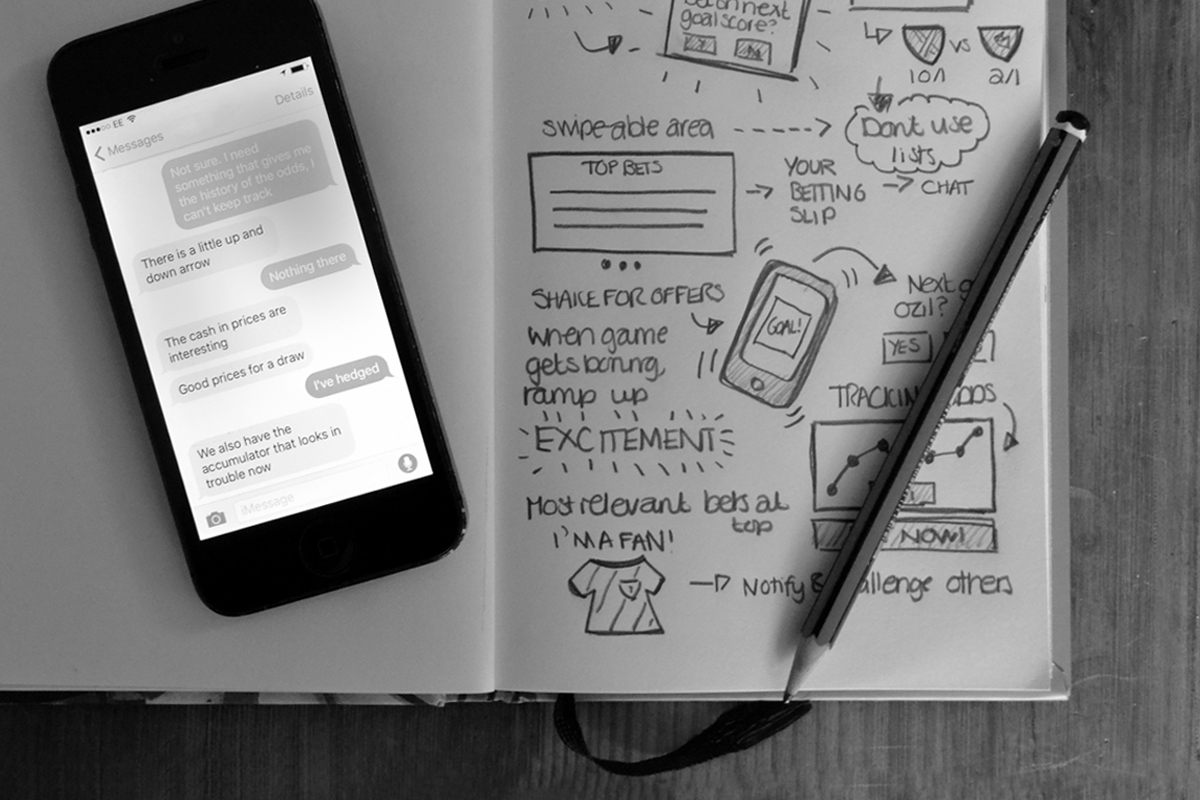 EE
Messages
Details
Not sure. I need
something that gives me
the history of the odds, I
can't keep track
There is a little up and
down arrow
Nothing there
The cash in prices are
interesting
Good prices for a draw
I've hedged
We also have the
accumulator that looks in
trouble now
iMessage
next
goal score?
Y
N
vs
10/1
2/1
swipeable area
Dont use
lists
TOP BETS
YOUR
BETTING
SLIP
CHAT
SHAKE FOR OFFERS
when game
gets boring,
ramp up
EXCITEMENT
GOAL!
Next
ozil?
YES
TRACKIN
NOW!
Most relevant bets at
top
I'M A FAN!
Notify &
others